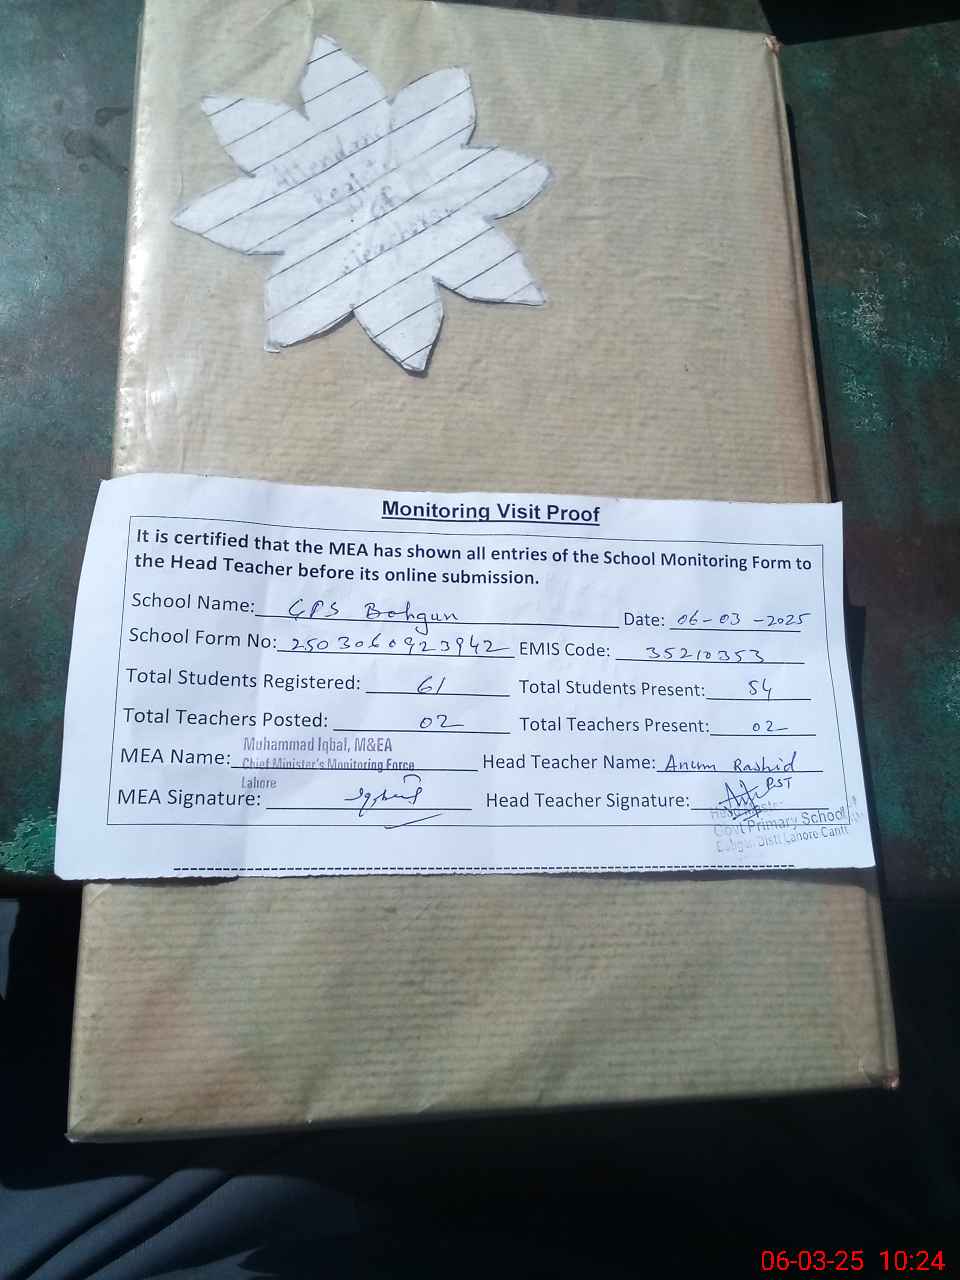 Attendance
Register
of
Teachers
Monitoring Visit Proof
It is certified that the MEA has shown all entries of the School Monitoring Form to
the Head Teacher before its online submission.
School Name: GPS Bohgun Date: 06-03-2025
School Form No: 2503060923942 EMIS Code: 35210353
Total Students Registered: 61 Total Students Present: 54
Total Teachers Posted: 02 Total Teachers Present: 02
Muhammad Iqbal, M&EA
MEA Name: Chief Minister's Monitoring Force Head Teacher Name: Anum Rashid
Lahore
PST
MEA Signature: Iqbal Head Teacher Signature:
Head Master
Govt Primary School
Distt Lahore Cantt
06-03-25 10:24